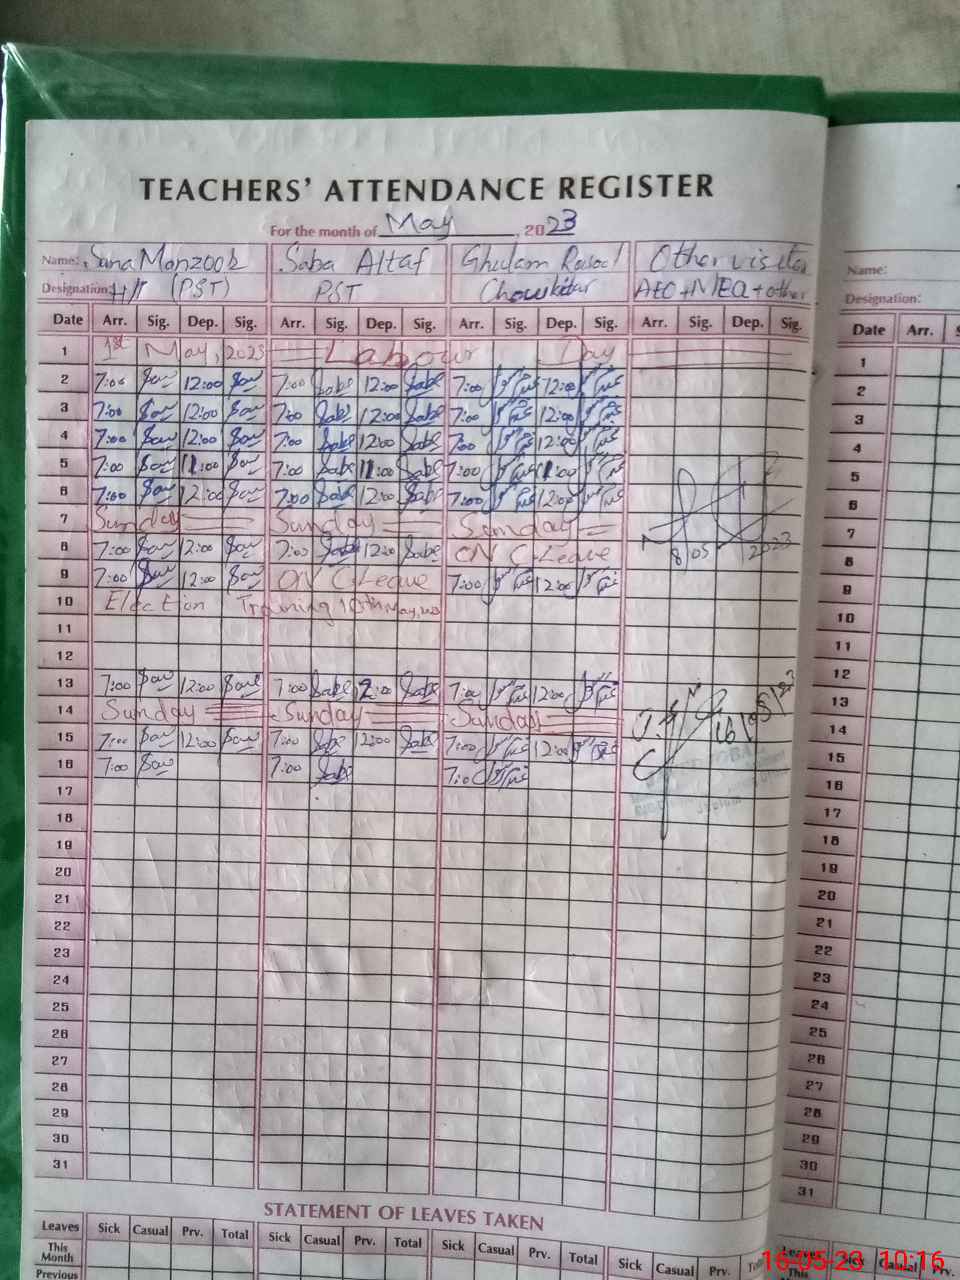 TEACHERS' ATTENDANCE REGISTER
For the month of May, 2023
Name: Sana Monzoor Saba Altaf Ghulam Rasool Other visitor
Designation: H/T (PST) PST Chowkidar AEO+MEA+other
Date Arr. Sig. Dep. Sig. Arr. Sig. Dep. Sig. Arr. Sig. Dep. Sig. Arr. Sig. Dep. Sig.
1 1st May, 2023 Labour Day
2 7:00 12:00 7:00 Saba 12:00 Saba 7:00 12:00
3 7:00 12:00 7:00 Saba 12:00 Saba 7:00 12:00
4 7:00 12:00 7:00 Saba 12:00 Saba 7:00 12:00
5 7:00 11:00 7:00 Saba 11:00 Saba 7:00 11:00
6 7:00 12:00 7:00 Saba 12:00 Saba 7:00 12:00
7 Sunday Sunday Sunday
8 7:00 12:00 7:00 Saba 12:00 Saba ON C-Leave 8/05 2023
9 7:00 12:00 ON C-Leave 7:00 12:00
10 Election Training 10th May,
11
12
13 7:00 12:00 7:00 Saba 12:00 Saba 7:00 12:00
14 Sunday Sunday Sunday 16/05/23
15 7:00 12:00 7:00 Saba 12:00 Saba 7:00 12:00
16 7:00 7:00 Saba 7:00
17
18
19
20
21
22
23
24
25
26
27
28
29
30
31
STATEMENT OF LEAVES TAKEN
Leaves Sick Casual Prv. Total Sick Casual Prv. Total Sick Casual Prv. Total Sick Casual Prv.
This Month
Previous
Name:
Designation:
Date Arr.
1
2
3
4
5
6
7
8
9
10
11
12
13
14
15
16
17
18
19
20
21
22
23
24
25
26
27
28
29
30
31
Leaves Sick Casual Prv.
This
16-05-23 10:16